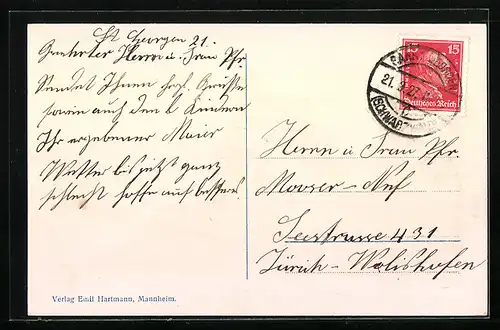 St Georgen 21.
Geehrter Herr u. Frau Pfr.
Sendet Ihnen hrzl. Grüsse
sowie auch den l. Kindern
Ihr ergebener Maier
Wetter bis jetzt ganz
schlecht hoffe auf bessere
15 15
Deutsches Reich
21.
(SCHWARZW
Herrn u Frau Pfr.
Mooser-Nef
Seestrasse 431
Zürich-Wollishofen
Verlag Emil Hartmann, Mannheim.